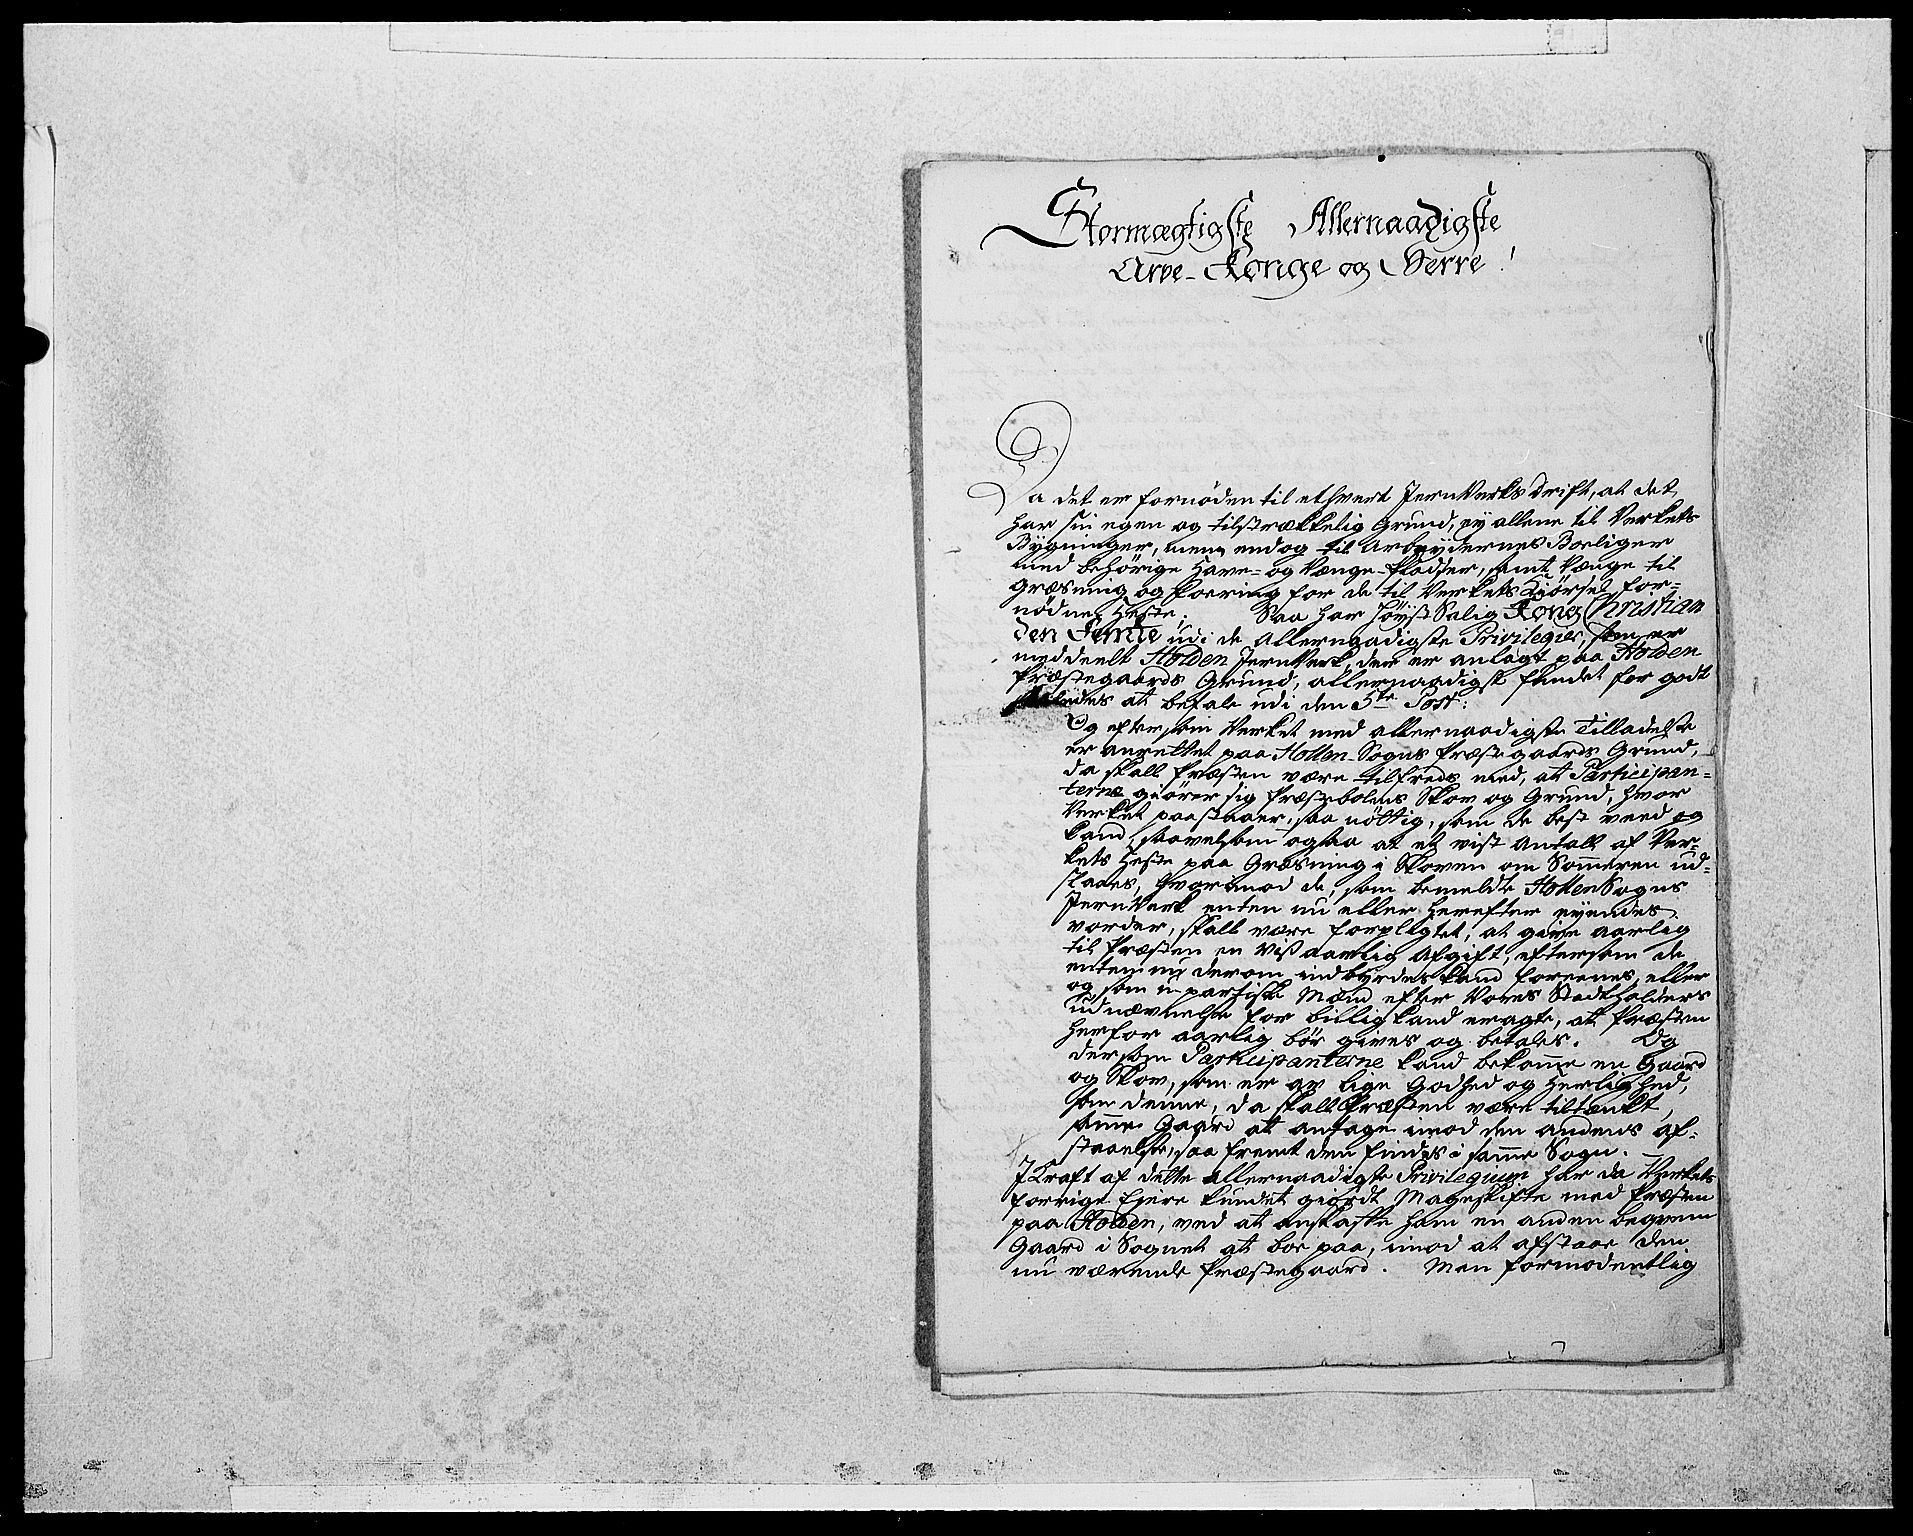 Stormægtigste Allernaadigste
Arve-Konge og Herre!
Da det er fornöden til ethvert JernVerks Drift, at det
har sin egen og tilstrækkelig Grund, ey allene til Verkets
Bygninger, men endog til Arbeydernes Boeliger
med behörige Have- og Vænge-Pladser, samt Vænge til
Græsning og Foering for de til Verkets Kiörsel for-
nödne Heste; Saa har Höyst Salig Kong Christian
den Femte udi de allernaadigste Privilegier, som er
meddeelt Holden JernVerk, der er anlagt paa Holden
Præstegaards Grund, allernaadigst fundet for godt
saaledes at befale udi den 5te Post:
Og eftersom Verket med allernaadigste Tilladelse
er anrettet paa Hollen-Sogns Præstegaards Grund,
da skall Præsten være tilfreds med, at Participan-
terne giörer sig Præstebolens Skov og Grund, hvor
Verket paastaaer, saa nöttig, som de best veed og
kand, saavelsom ogsaa at et vist Antall af Ver-
kets Heste paa Græsning i Skoven om Sommeren ud-
slaaes, hvorimod de, som bemeldte Hollen Sogns
JernVerk enten nu eller herefter eyendes
vorder, skall være forpligtet, at give aarlig
til Præsten en Viß aarlig Afgift, eftersom de
enten nu derom indbyrdes kand foreenes, eller
og som upartiske Mænd efter Vores Stadtholders
udnævnelse for billig kand eragte, at Præsten
herfor aarlig bör gives og betales. Og
dersom Participanterne kand bekomme en Gaard
og Skov, som er av lige Godhed og Herlighed,
som denne, da skall Præsten være tiltænkt
samme Gaard at antage imod den andens af-
staaelse, saa fremt den findes i samme Sogn.
I Kraft af dette allernaadigste Privilegium har da Verkets
forrige Eyere kundet giördt Mageskifte med Præsten
paa Holden, ved at anskaffe ham en anden beqvem
Gaard i Sognet at boe paa, imod at afstaae den
nu værende Præstegaard. Men formodentlig